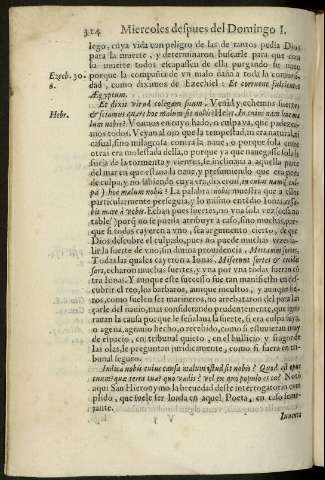 314 Miercoles despues del Domingo I.
lego, cuya vida con peligro de las de tantos pedia Dios
para la muerte, y determinaron buscarle para que con
su muerte todos escapassen de ella purgando su nave
Ezech. 30. porque la compañia de vn malo daña a toda la comuni-
6. dad, como diximos de Ezechiel: Et corruent fulcientes
Ægyptum.
Et dixit vir ad collegam suum. Venid y echemos suertes,
Hebr. & sciamus quare hoc malum sit nobis: Hebr. In cuius nam hac ma
lum nobis? Y an cuyo hado, o culpa va, que padezca-
mos todos. Veyan al ojo que la tempestad, ni era natural, ni
casual, sino milagrosa contra la naue, o porque sola entre
otras era molestada della, o porque ya que nauegasse sola la
furia de la tormenta y vientos, se inclinaua a aquella parte
del mar en que estaua la naue, y presumiendo que era pena
de culpa, y no sabiendo cuya era, dixeron, in cuius nam cul-
pa hoc malum nobis? La palabra nobis, muestra que a ellos
particularmente perseguia, y lo mismo entēdio Ionas,
mare à vobis. Echan pues suertes, no vna sola vez (cosa no
table) porq̃ no se pueda atribuyr a caso, sino muchas, por-
que si todas cayeren a vno, sea argumento cierto, de que
Dios descubre el culpado, pues no puede muchas vezes sa-
lir la suerte de vno sin diuina prouidencia. Mittamus sortes.
Todas las quales cayeron a Ionas. Miserunt sortes & cecidit
sors, echaron muchas suertes, y vna por vna todas fueron cō
tra Ionas. Y aunque este successo fue tan manifiesto en des-
cubrir el reo, los barbaros, aunque incultos, y aunque fie-
ros, como suelen ser marineros, no arrebataron del para lan
çarle del nauio, mas considerando prudentemente, que igno
rauan la causa porque le señalaua la suerte, si era culpa suya,
o agena, agrauio hecho, o recebido, como si estuuieran muy
de espacio, en tribunal quieto, en el bullicio y fragor de
las olas, le preguntan juridicamente, como si fuera en tri-
bunal seguro.
Indica nobis cuius causa malum istud sit nobis? Quod est opus
tuum? quæ terra tua? quo vadis? vel ex quo populo es tu? Notò
aqui San Hieronymo la breuedad deste interrogatorio cum
plido, que suele ser loada en aquel Poeta, en caso seme-
jante.